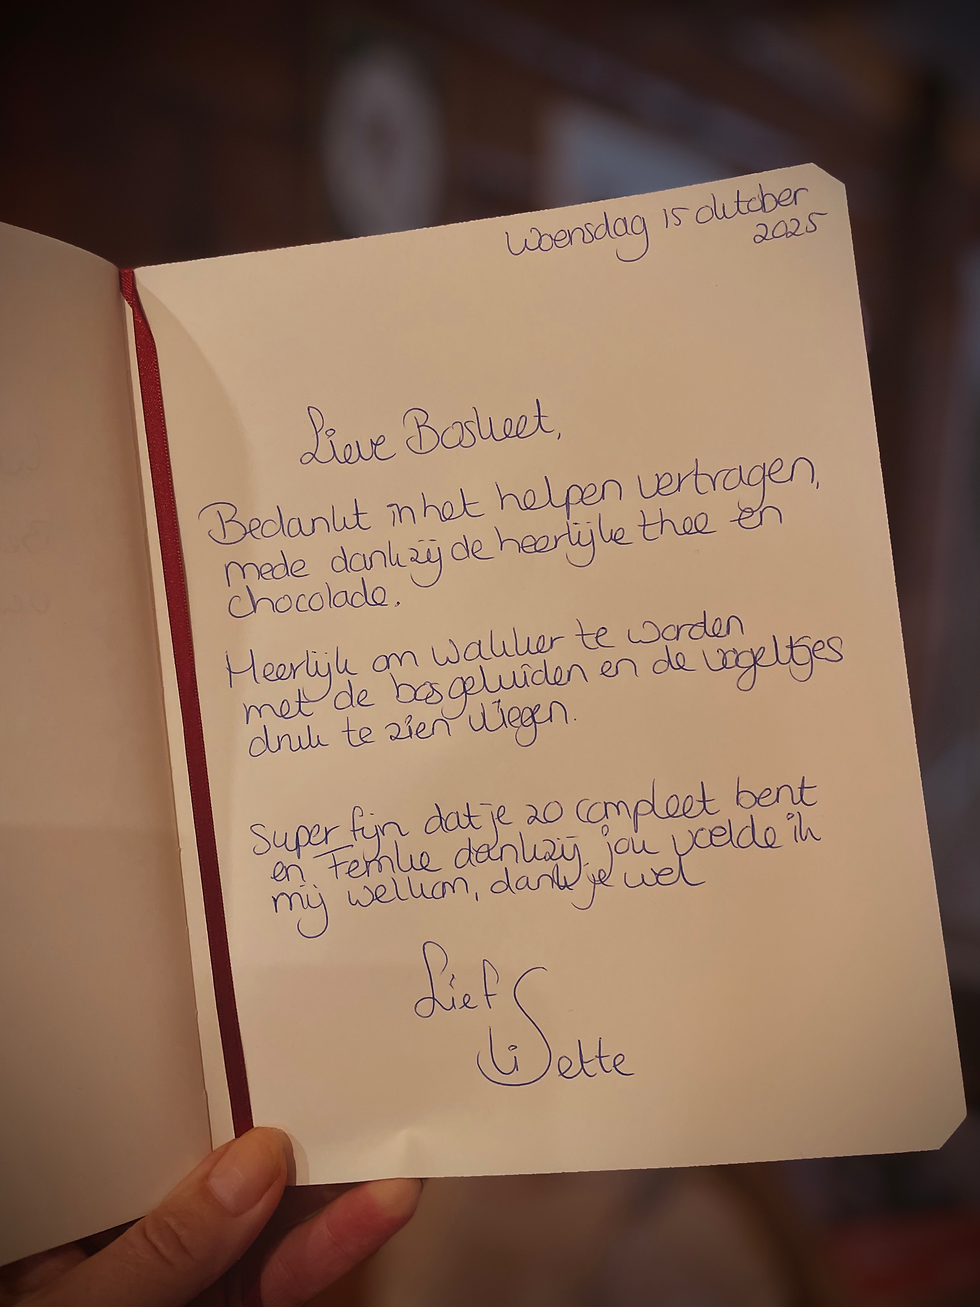 Woensdag 15 oktober
2025
Lieve Boskeet,
Bedankt in het helpen vertragen,
mede dankzij de heerlijke thee en
chocolade.
Heerlijk om wakker te worden
met de bosgeluiden en de vogeltjes
druk te zien vliegen.
Super fijn dat je zo compleet bent
en Femke dankzij jou voelde ik
mij welkom, dank je wel
Lief
Lisette